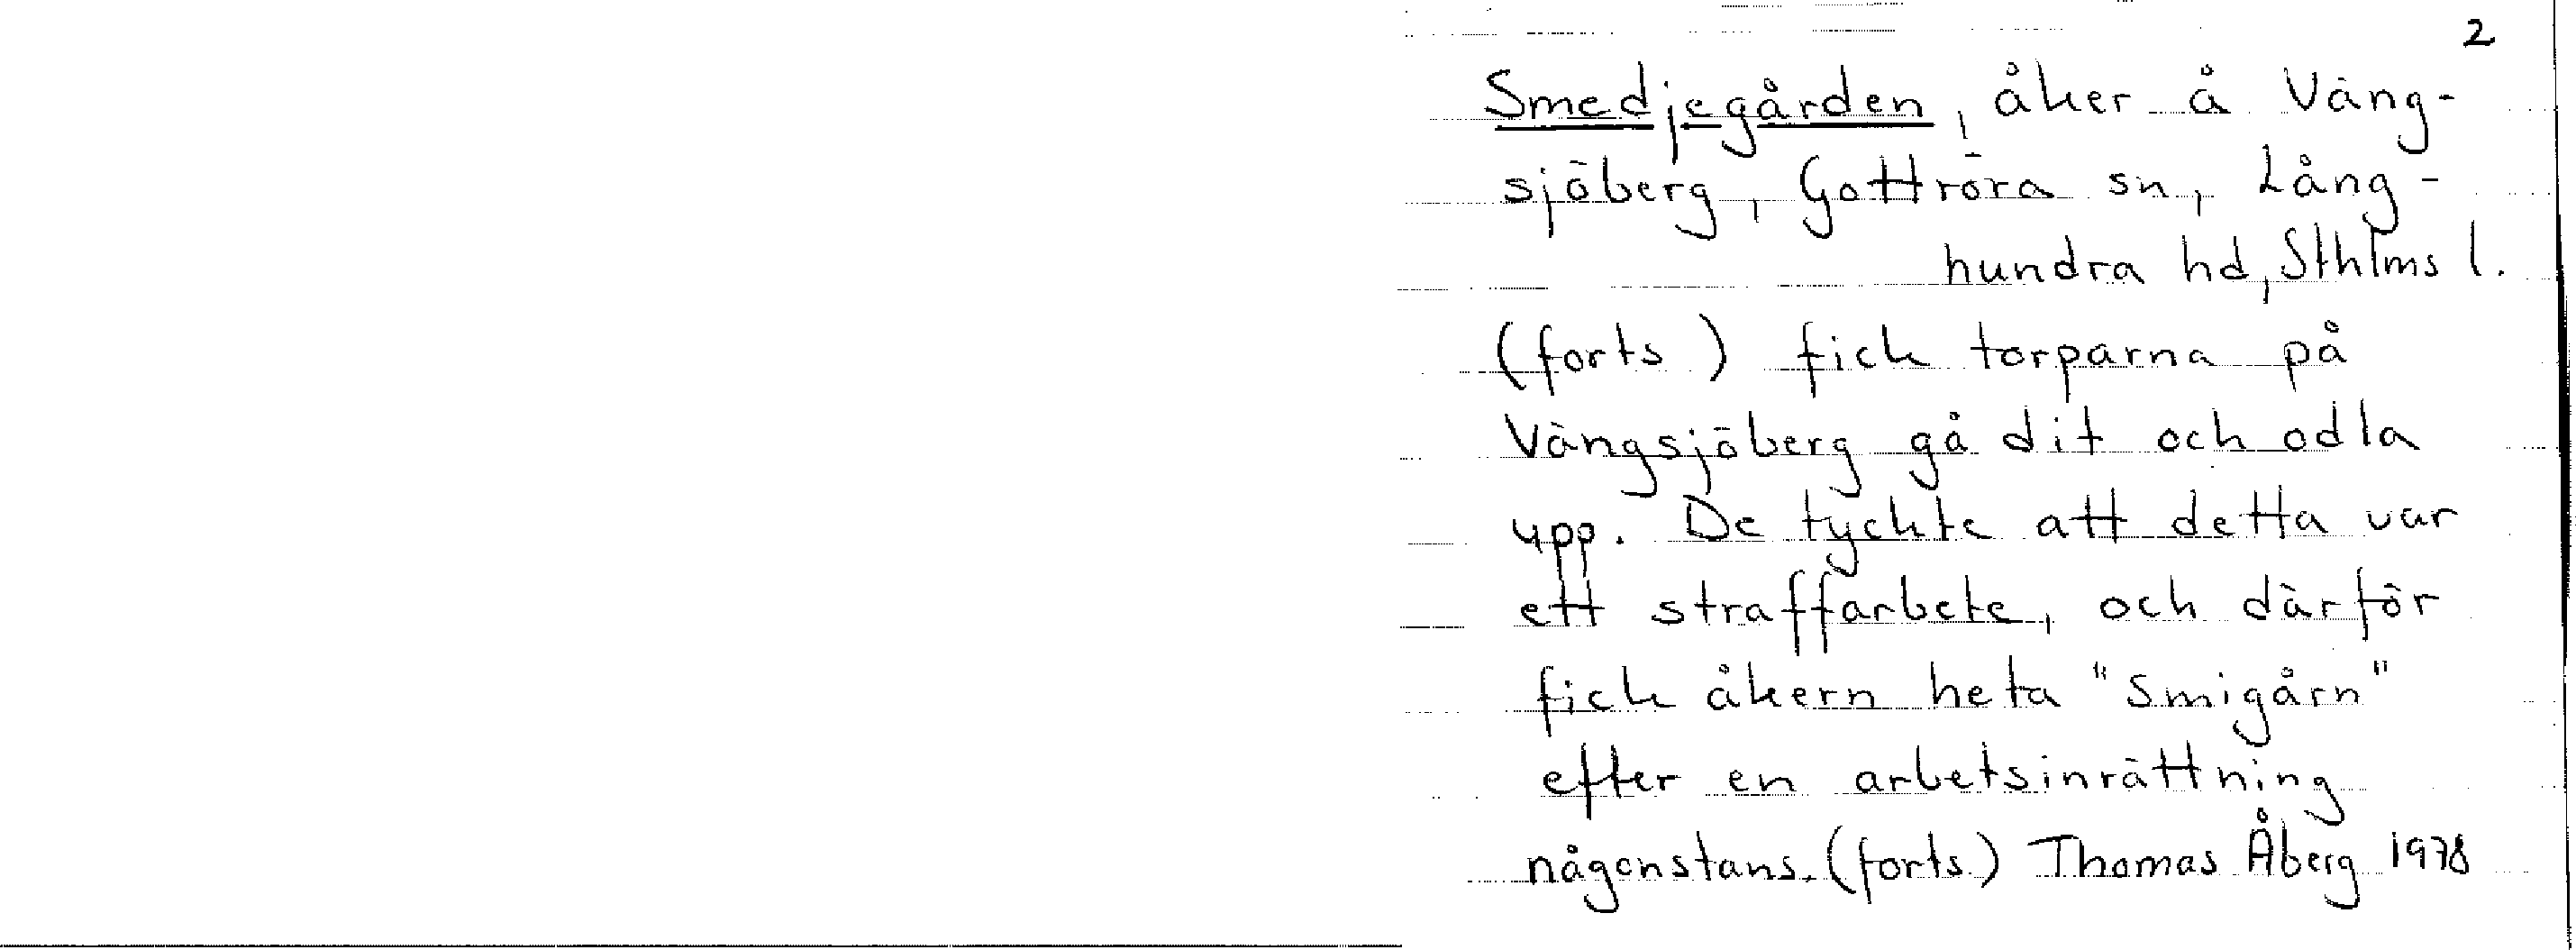 2
Smedjegården, åker å Väng-
sjöberg, Gottröra sn, Lång-
hundra hd, Sthlms l.
(forts) fick torparna på
Vängsjöberg gå dit och odla
upp. De tyckte att detta var
ett straffarbete, och därför
fick åkern heta "Smigårn"
efter en arbetsinrättning
någonstans. (forts.) Thomas Åberg 1978